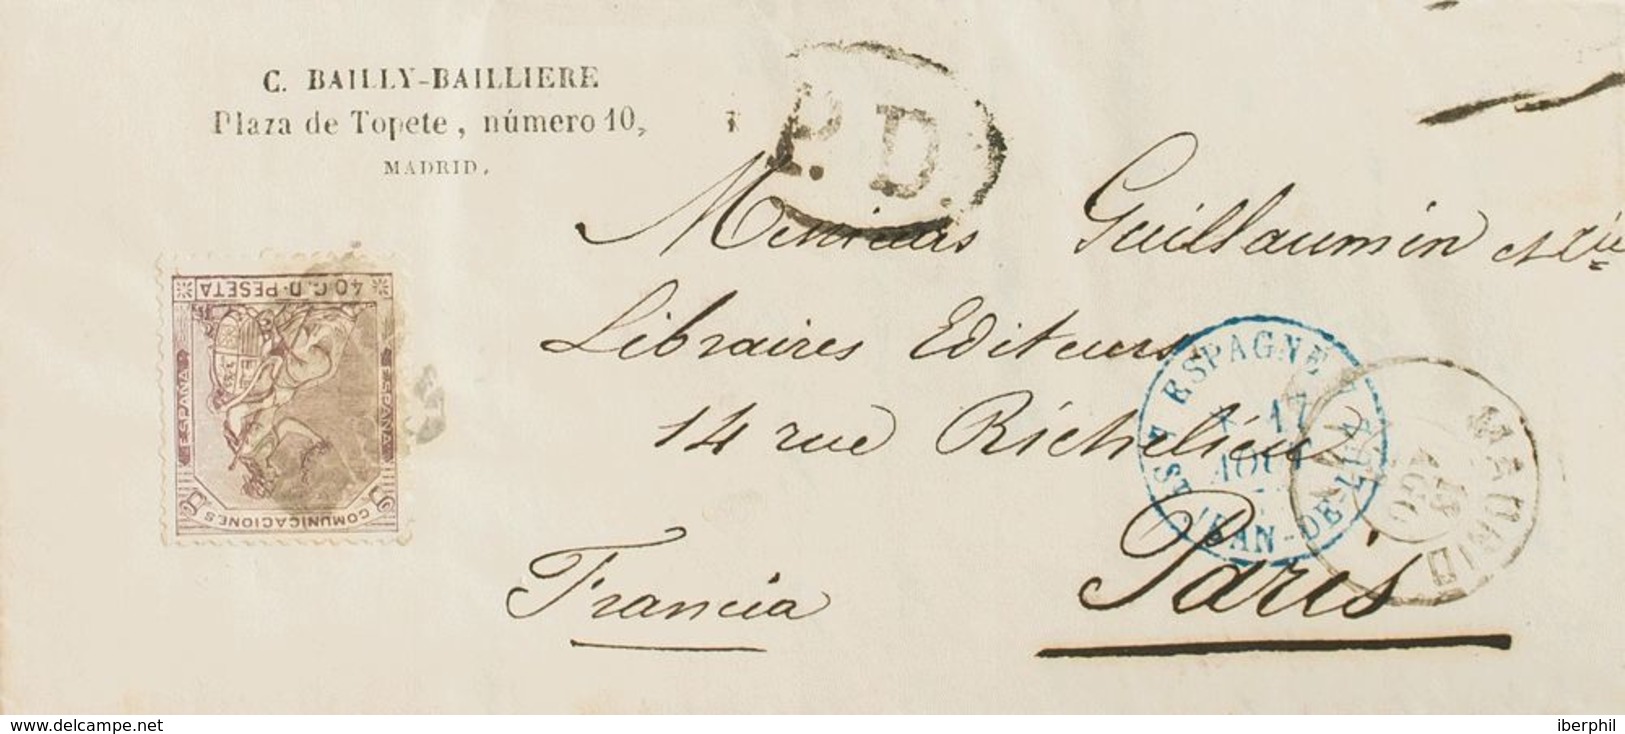 C. BAILLY-BAILLIERE
Plaza de Topete, número 10,
MADRID.
P.D.
Messieurs Guillaumin et Cie
Libraires Editeurs
14 rue Richelieu
Paris
Francia
40 C. D. PESETA
ESPAÑA
ESPAÑA
COMUNICACIONES
ESPAGNE
17 AOUT
ST JEAN-DE-LUZ
MADRID
AGO
www.delcampe.net
iberphil